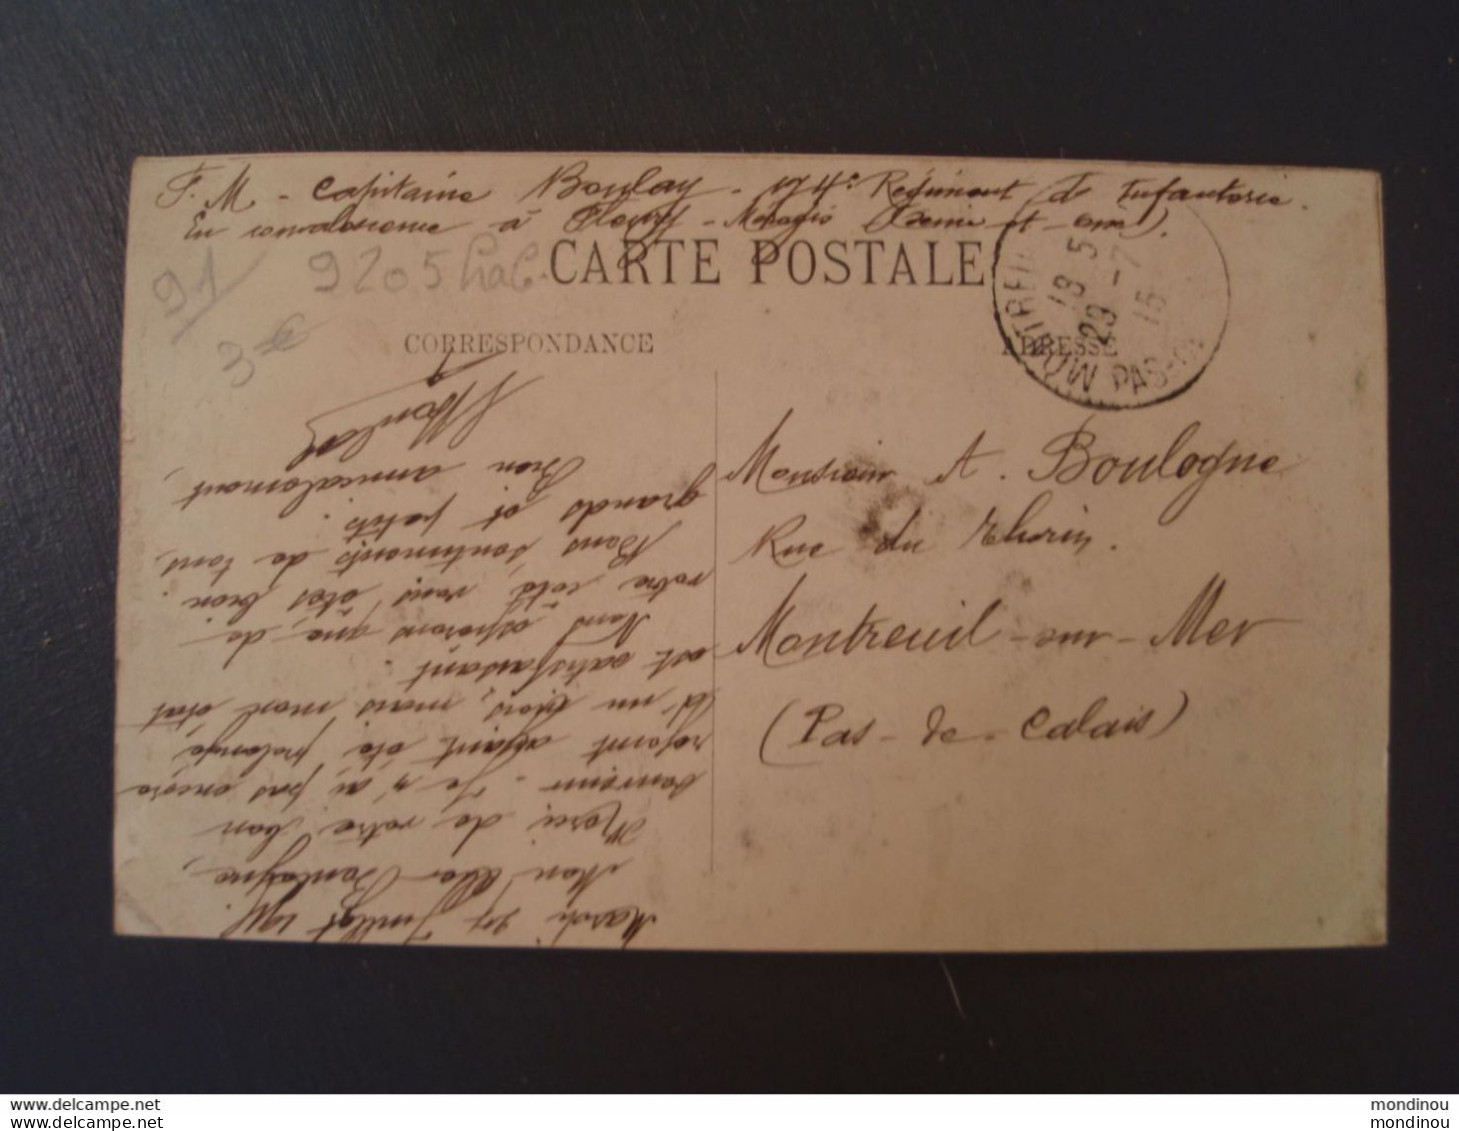 F. M - Capitaine Boulay - 174e Régiment d'Infanterie.
En convalescence à Fleury - Mérogis (Seine-et-Oise).
CARTE POSTALE
91
9205
3 €
CORRESPONDANCE
ADRESSE
MONTREUIL PAS-
18 5
29 -7
15
Monsieur A. Boulogne
Rue du Thorin.
Montreuil-sur-Mer
(Pas-de-Calais)
Mardi 27 Juillet 1915.
Mon cher Boulogne,
Merci de votre bon
souvenir. Je n'ai pas encore
rejoint ayant été prolongé
d'un mois, mais mon état
est satisfaisant.
Nous espérons que, de
votre côté, vous êtes bien.
Bons sentiments de tous,
grands et petits.
Bien amicalement,
Boulay
delcampe.net
mondinou
delcampe.net
mondinou